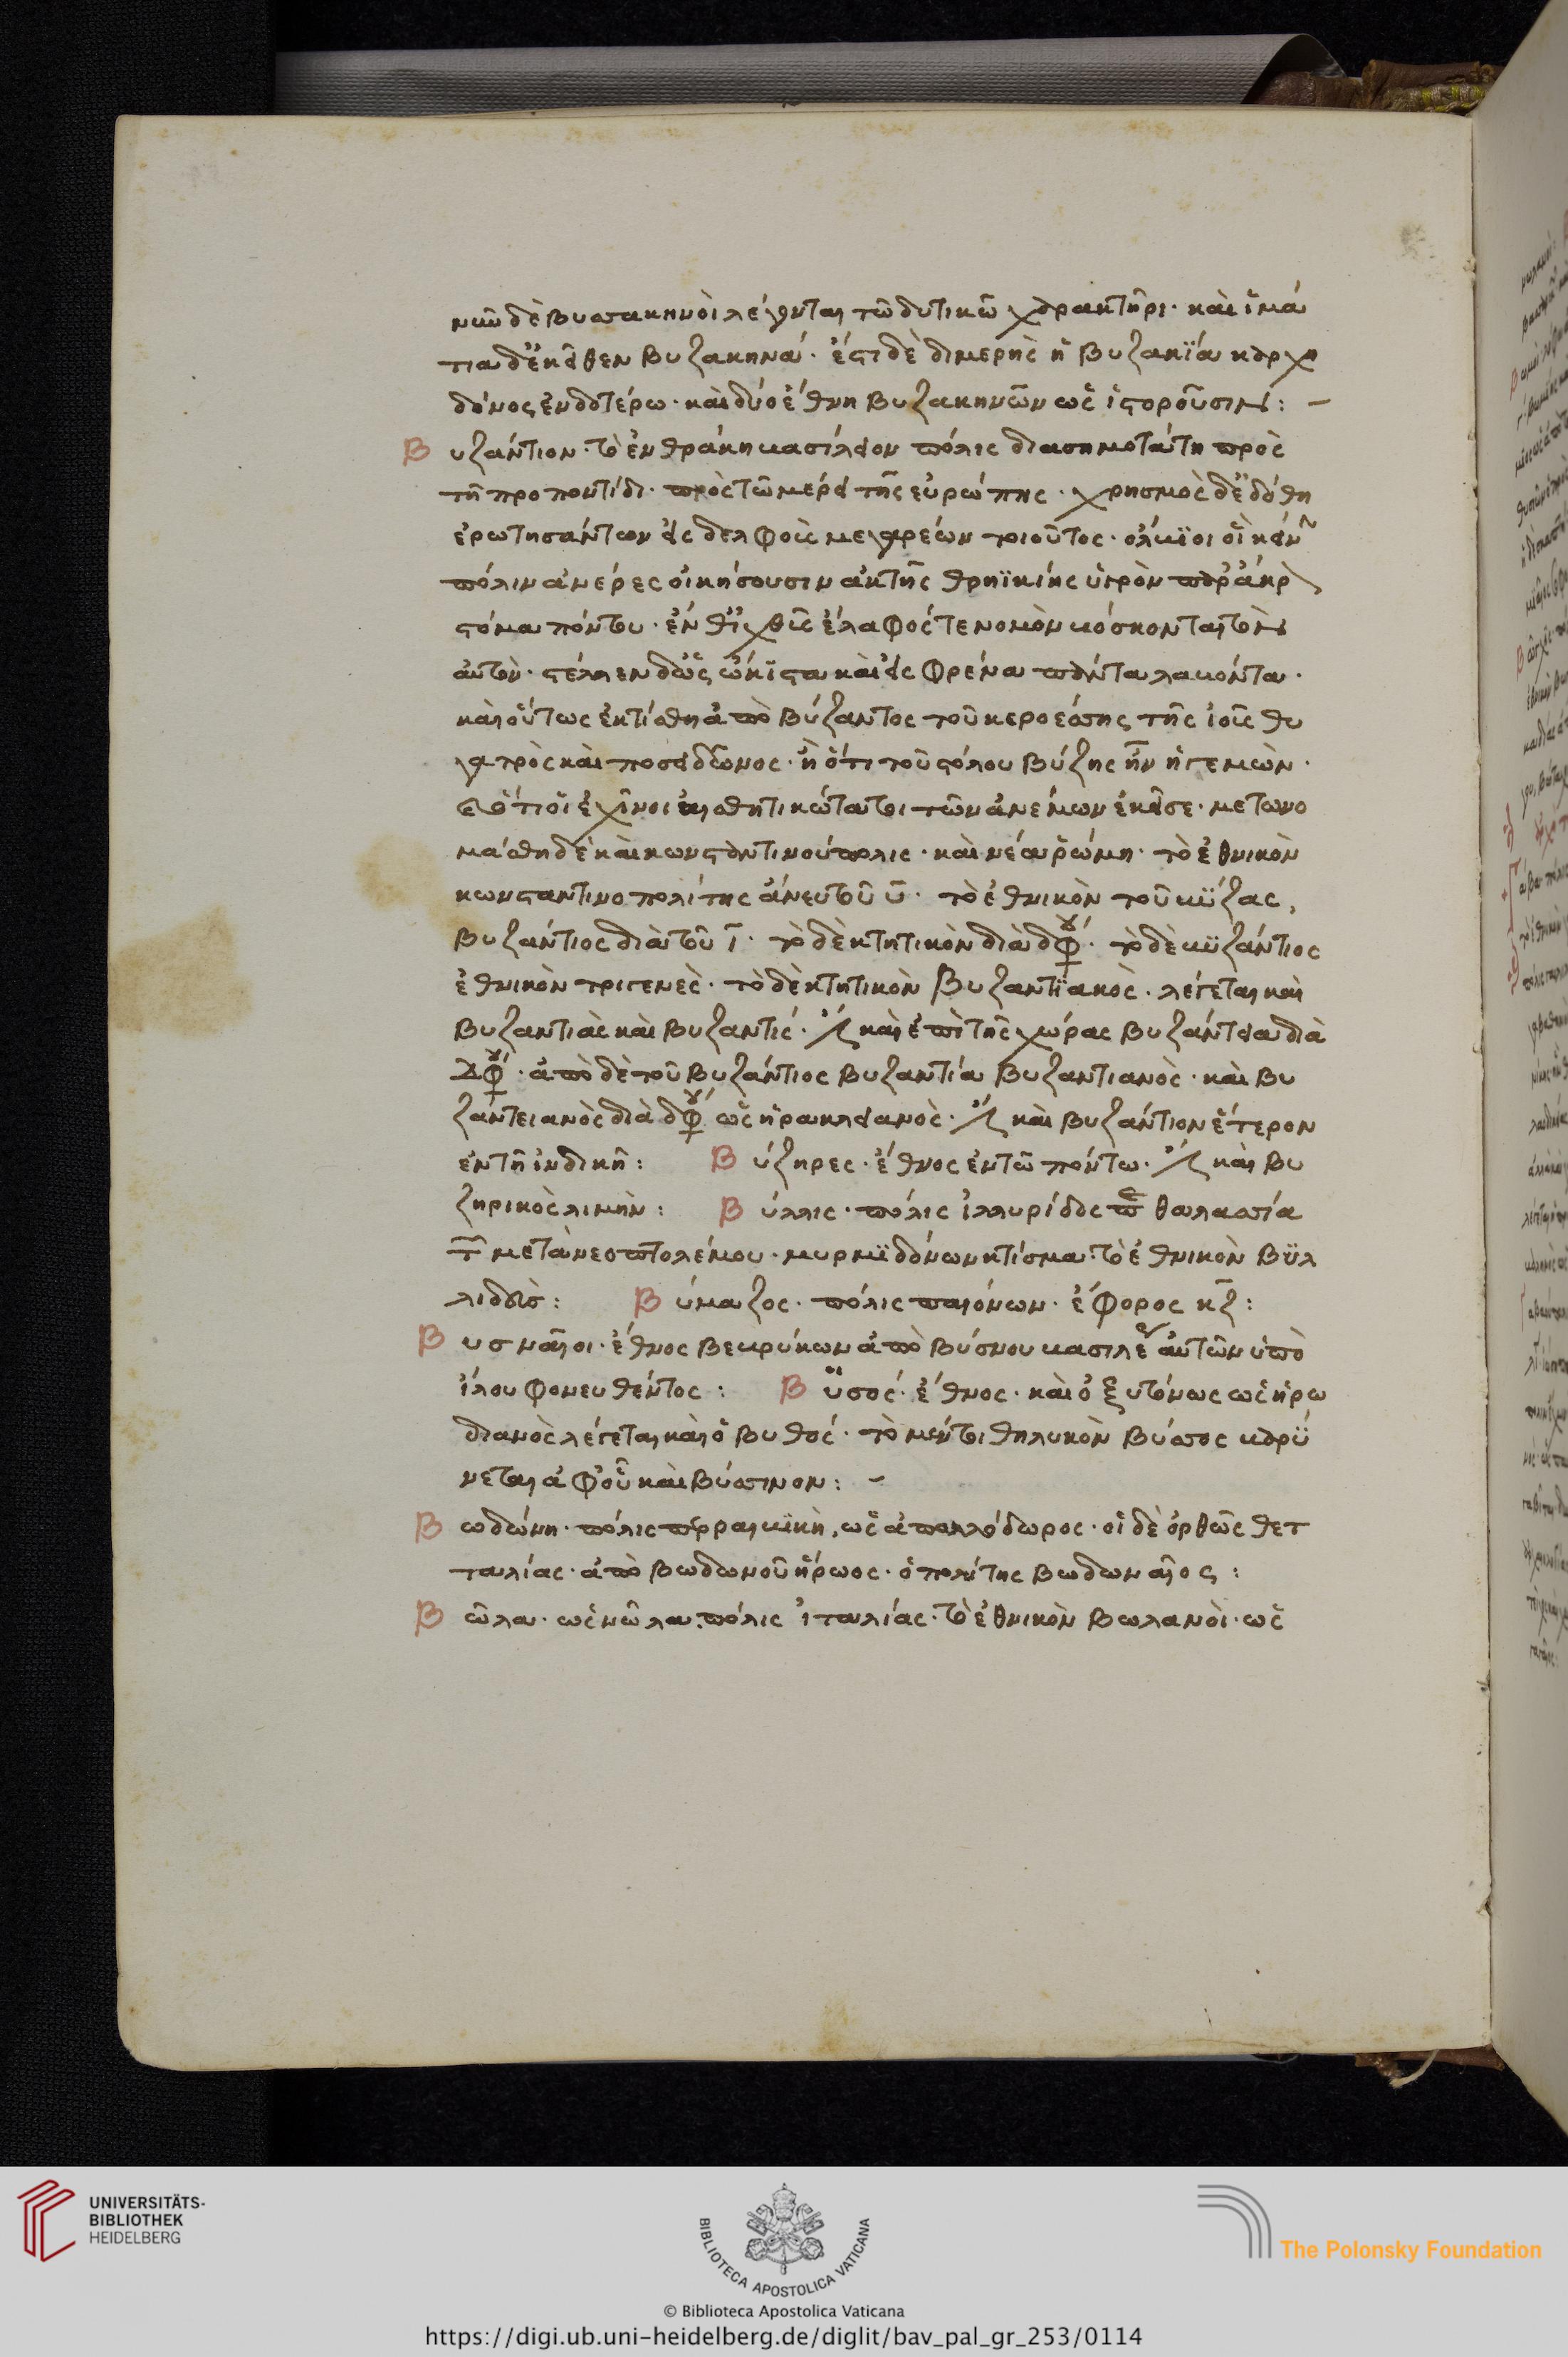 νῦν δὲ βυσσακηνοὶ λέγονται τῶ δυτικῶ χαρακτῆρι· καὶ ἱμά
τια δ' ἐκεῖθεν βυζακηνά· ἔστι δὲ διμερὴς ἡ βυζακΐα καρχη
δόνος ἐνδοτέρω· καὶ δύο ἔθνη βυζακηνῶν ὡς ἱστοροῦσιν: –
Βυζάντιον· τὸ ἐν θράκη βασίλειον πόλις διασημοτάτη πρὸς
τῆ προποντίδι· πρὸς τῶ μέρει τῆς εὐρώπης· χρησμὸς δ' ἐδόθη
ἐρωτησάντων εἰς δελφοῖς μεγαρέων τοιοῦτος· ὄλβϊοι οἳ κείνην
πόλιν ἀνέρες οἰκήσουσιν ἀκτῆς θρηϊκίης ὑγρὸν παρ' ἄκρον
στόμα πόντου· ἔνθ' ἰχθῦς ἔλαφός τε νομὸν βόσκονται τὸν
αὐτόν· στέλλειν δ' ὡς ὤκϊστα καὶ εἰς φρένα πάντα λαβόντα·
καὶ οὕτως ἐκτίσθη ἀπὸ βύζαντος τοῦ κεροέσσης τῆς ἰοῦς θυ
γατρὸς καὶ ποσειδῶνος· ἢ ὅτι τοῦ στόλου βύζης ἦν ἡγεμὼν·
ὅτι οἱ ἐχῖνοι αἰσθητικώτατοι τῶν ἀνέμων ἐκεῖσε· μετωνο
μάσθη δὲ καὶ κωνσταντινούπολις· καὶ νέα ῥώμη· τὸ ἐθνικὸν
κωνσταντινοπολίτης ἄνευ τοῦ υ̅· τὸ ἐθνικὸν τοῦ βΰζας,
βυζάντιος διὰ τοῦ ι̅· τὸ δὲ κτητικὸν διὰ διφ· τὸ δὲ βϋζάντιος
ἐθνικὸν τριγενὲς· τὸ δὲ κτητικὸν Βυζαντϊακὸς· λέγεται καὶ
βυζαντιὰς καὶ βυζαντίς· ἔστι καὶ ἐπὶ τῆς χώρας βυζάντεια διὰ
διφ· ἀπὸ δὲ τοῦ βυζάντιος βυζαντία βυζαντιανὸς· καὶ βυ
ζάντειανὸς διὰ διφ ὡς ἡρακλειανὸς· ἔστι καὶ βυζάντιον ἕτερον
ἐν τῆ ἰνδικῆ: Βύζηρες· ἔθνος ἐν τῶ πόντω· ἔστι καὶ βυ
ζηρικὸς λιμὴν: Βύλλις· πόλις ἰλλυρίδος παραθαλασσία
τῶν μετὰ νεοπτολέμου· μυρμϊδόνων κτίσμα· τὸ ἐθνικὸν βϋλ
λιδεὺς: Βύμαζος· πόλις παιόνων· ἔφορος κζ̅:
Βυσναῖοι· ἔθνος βεβρύκων ἀπὸ βύσνου βασιλέως αὐτῶν ὑπὸ
ἴλου φονευθέντος: Βΰσσός· ἔθνος· καὶ ὀξυτόνως ὡς ἡρω
διανὸς λέγεται καὶ ὁ βυθός· τὸ μέντοι θηλυκὸν βύσσος βαρΰ
νεται ἀφ' οὗ καὶ βύσσινον: –
Βωδώνη· πόλις περραιβϊκὴ, ὡς ἀπολλόδωρος· οἱ δὲ ὀρθῶς θετ
ταλίας· ἀπὸ βωδωνοῦ ἥρωος· ὁ πολίτης βωδωναῖος:
Βῶλα· ὡς νῶλα· πόλις ἰταλίας· τὸ ἐθνικὸν βωλανοὶ· ὡς
UNIVERSITÄTS-
BIBLIOTHEK
HEIDELBERG
BIBLIOTECA APOSTOLICA VATICANA
The Polonsky Foundation
© Biblioteca Apostolica Vaticana
https://digi.ub.uni-heidelberg.de/diglit/bav_pal_gr_253/0114